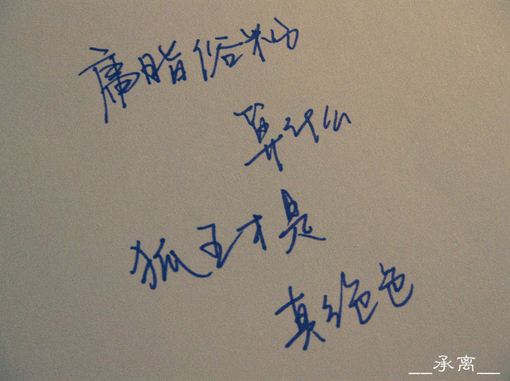 庸脂俗粉
算什么
狐王才是
真绝色
__承离__